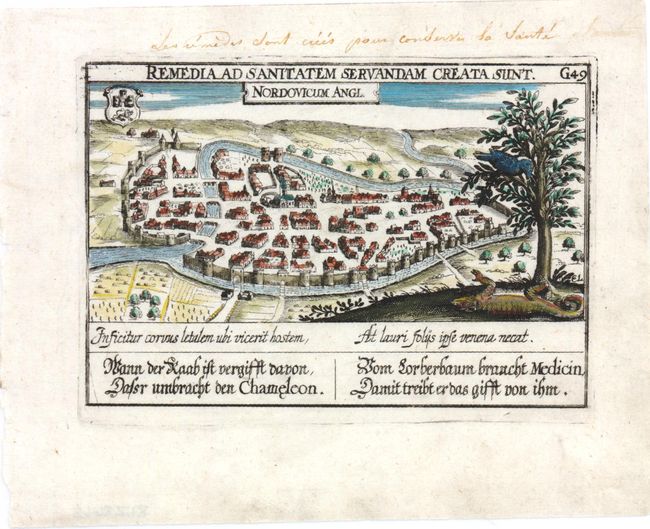 Les remedes sont créés pour conserver la Santé
REMEDIA AD SANITATEM SERVANDAM CREATA SUNT.
G49
NORDOVICUM ANGL.
Inficitur corvus letalem ubi vicerit hostem,
At lauri folijs ipse venena necat.
Wann der Raab ist vergifft davon,
Dasr umbracht den Chameleon.
Vom Lorberbaum braucht Medicin
Damit treibt er das gifft von ihm.